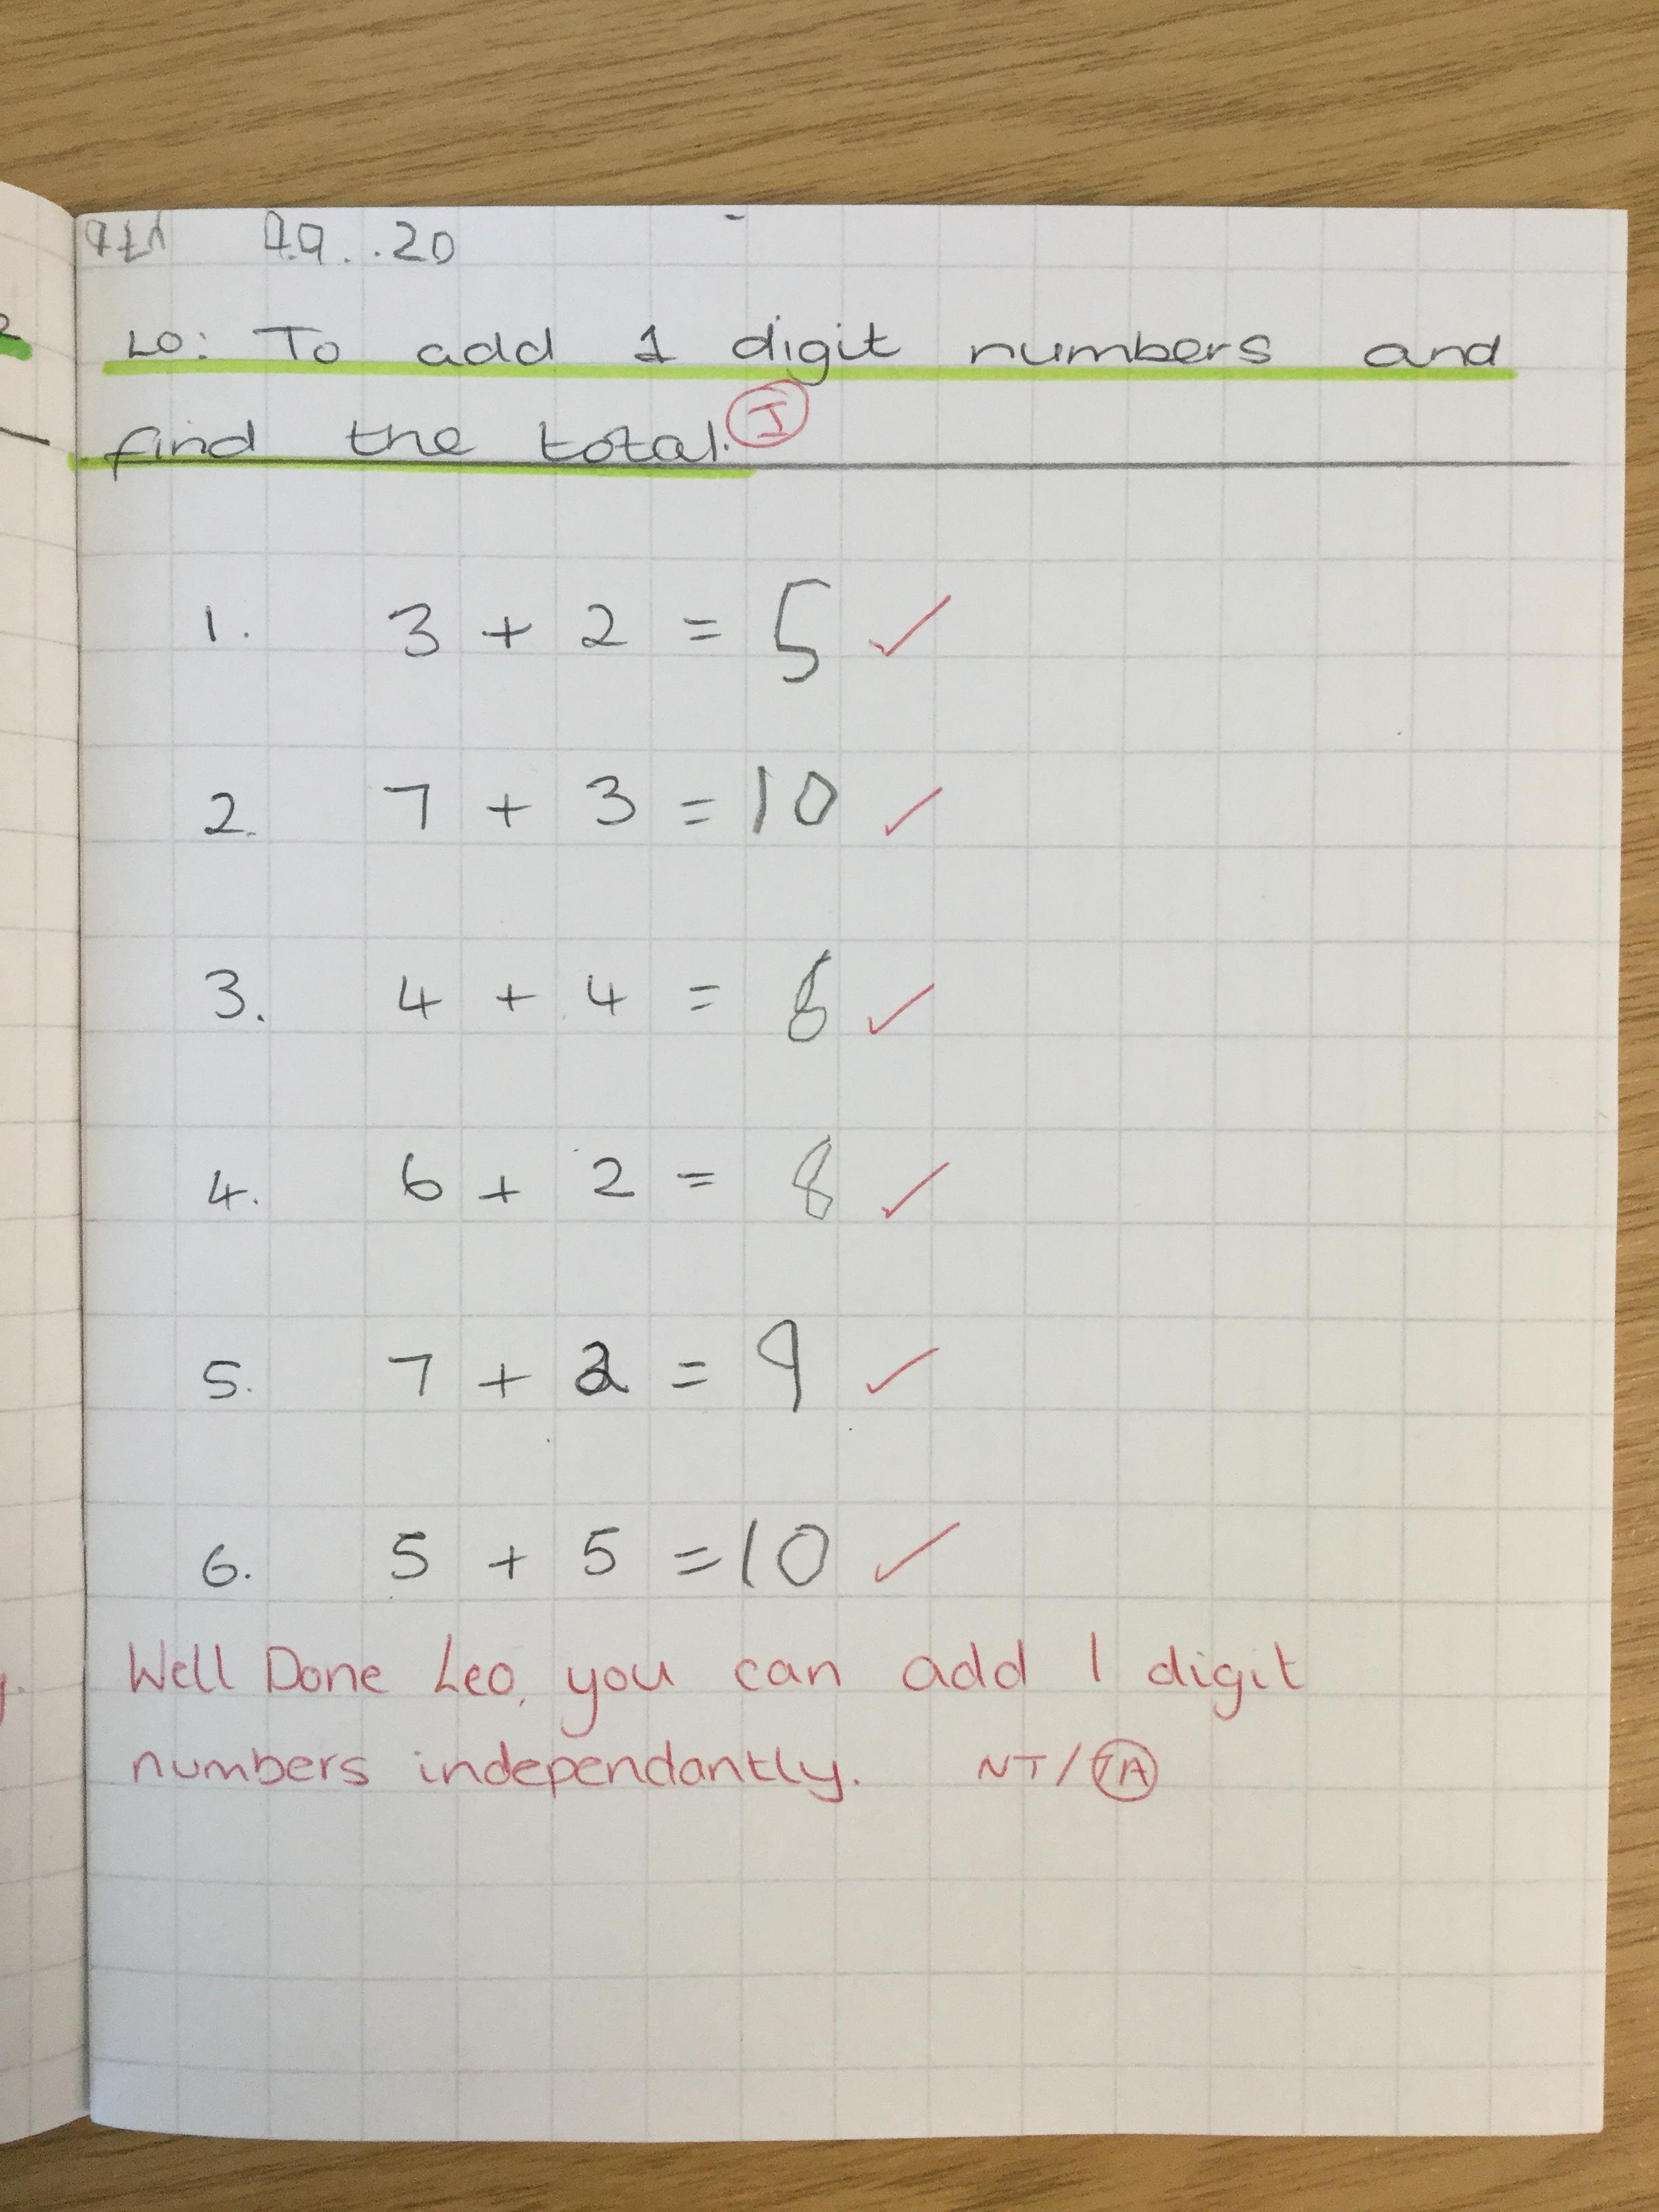 7.9..20
LO: To add 1 digit numbers and
find the total. I
1. 3 + 2 = 5 ✓
2. 7 + 3 = 10 ✓
3. 4 + 4 = 8 ✓
4. 6 + 2 = 8 ✓
5. 7 + 2 = 9 ✓
6. 5 + 5 = 10 ✓
Well Done Leo, you can add 1 digit
numbers independantly. NT/TA